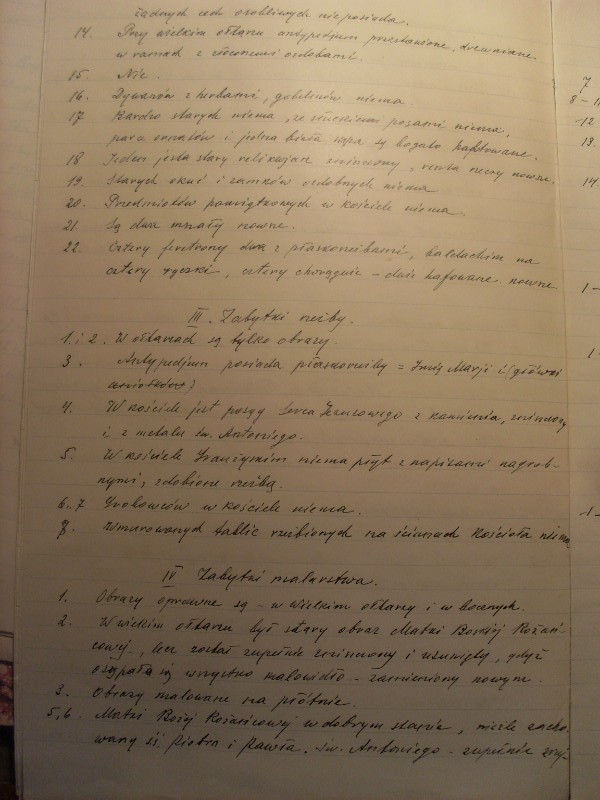 żadnych cech osobliwych nie posiada.
14. Przy wielkim ołtarzu antypedjum przestawione, drewniane
w ramach z złoconemi ozdobami.
15. Nic.
16. Dywanów z herbami, gobelinów niema.
17 Bardzo starych niema, ze słuckiemi pasami niema,
para ornatów i jedna biała kapa są bogato haftowane.
18 Jeden jest stary relikwjarz zniszczony, reszta rzeczy nowsze.
19. Starych okuć i zamków ozdobnych niema
20. Przedmiotów pamiątkowych w kościele niema.
21 Są dwa mszały nowne.
22. Cztery feretrony dwa z płaskorzeźbami, baldachim na
cztery rączki, cztery chorągwie - dwie hafowane nowne
III. Zabytki rzeźby.
1. i 2. W ołtarzach są tylko obrazy.
3. Antypedjum posiada płaskorzeźby = Imię Marji i (główki
aniołków)
4. W kościele jest posąg Serca Jezusowego z kamienia, zniszczony
i z metalu św. Antoniego.
5. W kościele niema płyt z napisami nagrob-
nymi, zdobione rzeźbą.
6. 7 Grobowców w kościele niema.
8. Wmurowanych tablic rzeźbionych na ścianach kościoła niema
IV Zabytki malarstwa.
1. Obrazy oprawne są - w wielkim ołtarzu i w bocznych.
2. W wielkim ołtarzu był stary obraz Matki Boskiej Różań-
cowej, lecz został zupełnie zniszczony i usunięty, gdyż
osypało się wszystko malowidło - zamieniony nowym.
3. Obrazy malowane na płótnie.
5, 6. Matki Bożej Różańcowej w dobrym stanie, nieźle zacho-
wany śś. Piotra i Pawła. św. Antoniego - zupełnie
7
8 - 11
12
13.
14
1 -
1 -
1 -